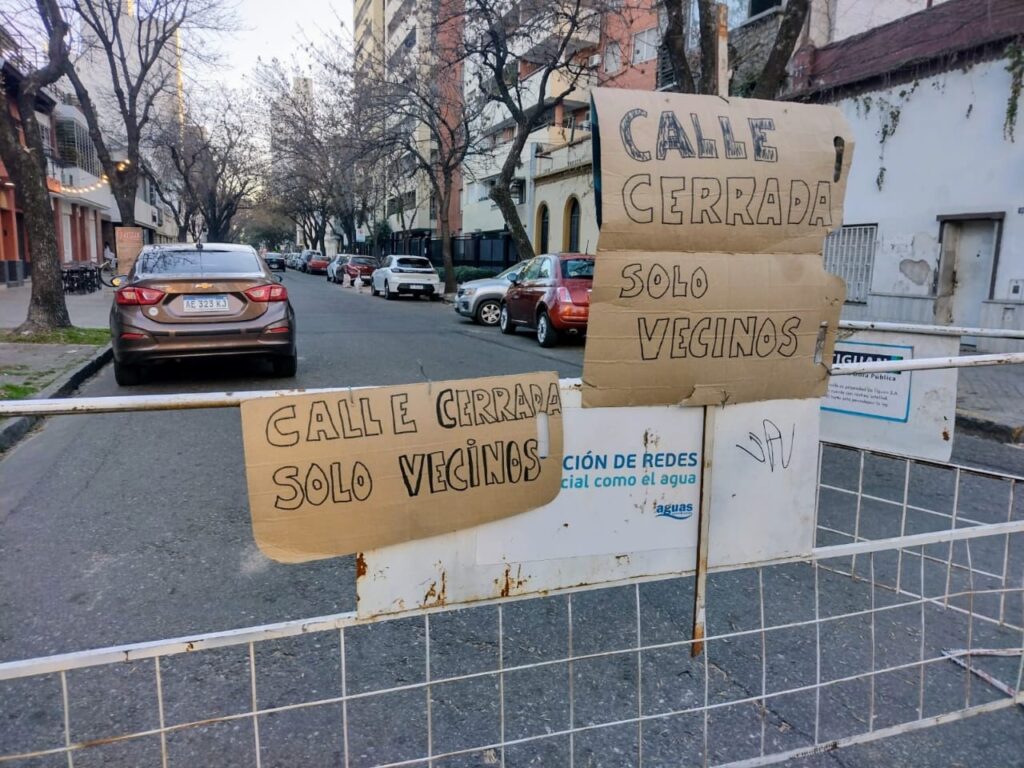 CALLE
CERRADA
SOLO
VECINOS
CALLE CERRADA
SOLO VECINOS
CIÓN DE REDES
cial como el agua
aguas
TIGUAN
Pública
AE 323 KJ